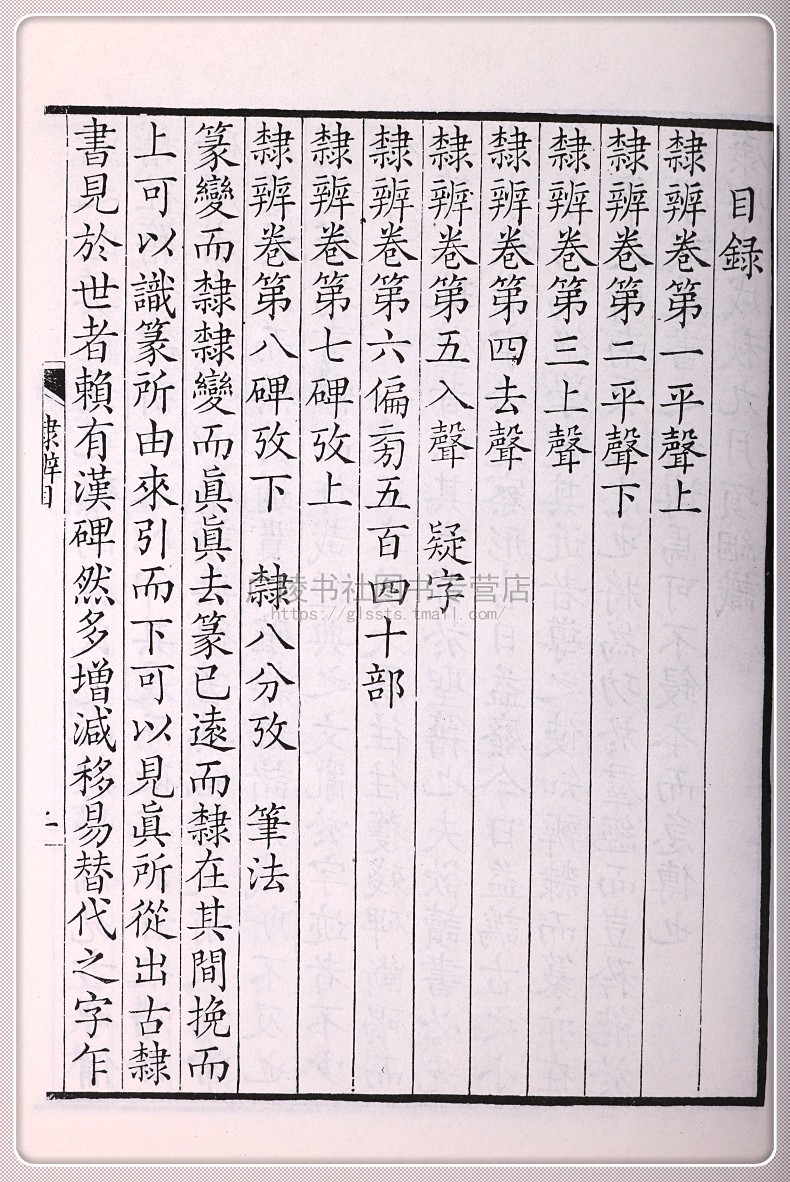 目録
隸辨卷第一平聲上
隸辨卷第二平聲下
隸辨卷第三上聲
隸辨卷第四去聲
隸辨卷第五入聲 疑字
隸辨卷第六偏㫄五百四十部
隸辨卷第七碑攷上
隸辨卷第八碑攷下 隸八分攷 筆法
篆變而隸隸變而眞眞去篆已遠而隸在其間挽而
上可以識篆所由來引而下可以見眞所從出古隸
書見於世者賴有漢碑然多增減移易替代之字乍
隸辨目
一
陵书社图书专营店
https://glssts.tmall.com/